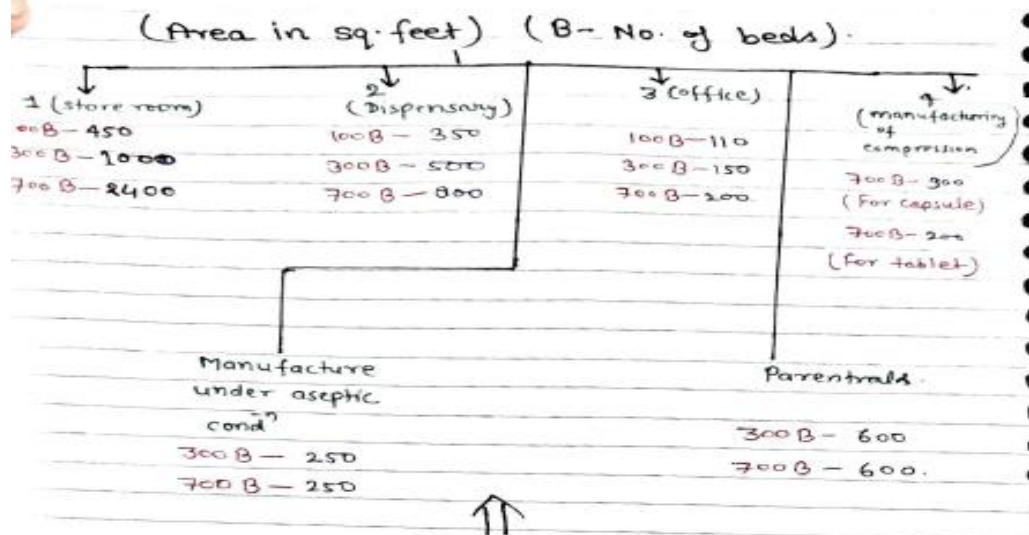 (Area in sq. feet) (B- No. of beds).
1 (store room)
00B - 450
300B - 1000
700 B - 2400
2
(Dispensary)
100B - 350
300B - 500
700 B - 800
3 (office)
100B - 110
300B - 150
700 B - 200
4
(manufacturing
of
compression
700 B - 300
(For capsule)
700 B - 200
(For tablet)
Manufacture
under aseptic
condⁿ
300 B - 250
700 B - 250
Parentrals.
300 B - 600
700 B - 600.